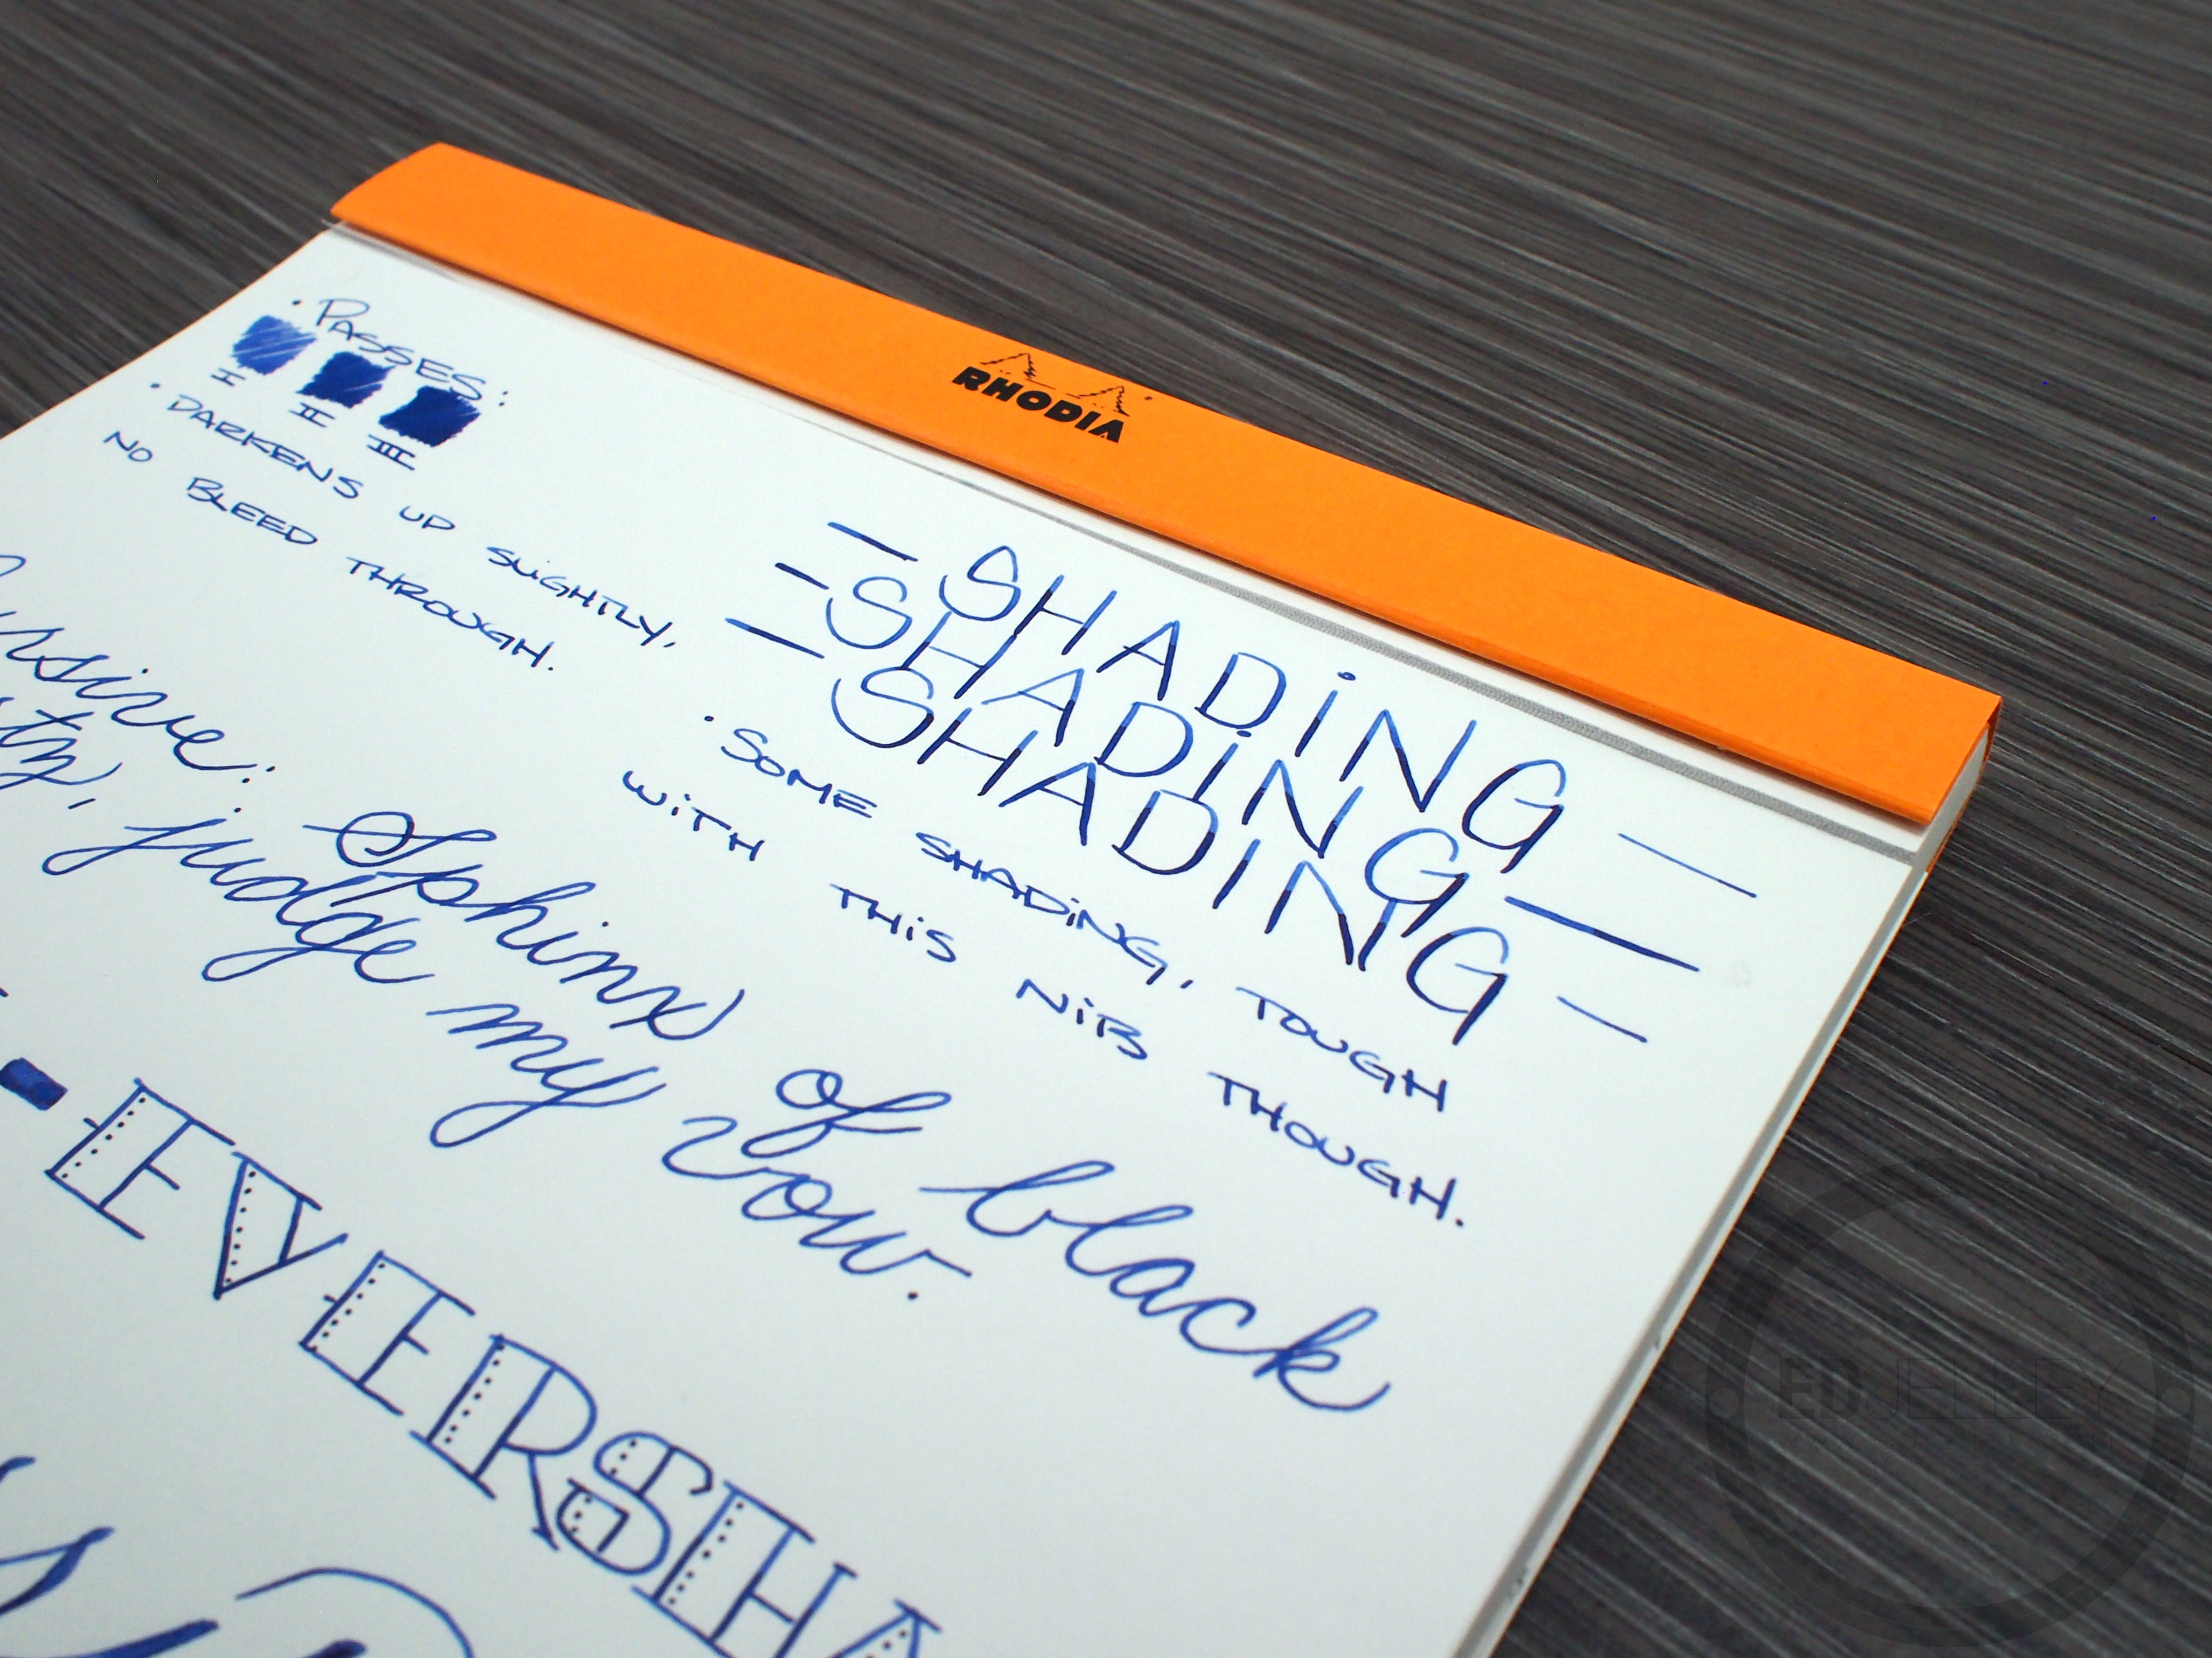 RHODIA
• PASSES:
I II III
• DARKENS UP SLIGHTLY,
NO BLEED THROUGH.
— SHADiNG —
— SHADiNG —
— SHADiNG —
• SOME SHADiNG, TOUGH
WiTH THiS NiB THOUGH.
Sphinx of black
judge my vow.
EVERSHA
EDJELLEY